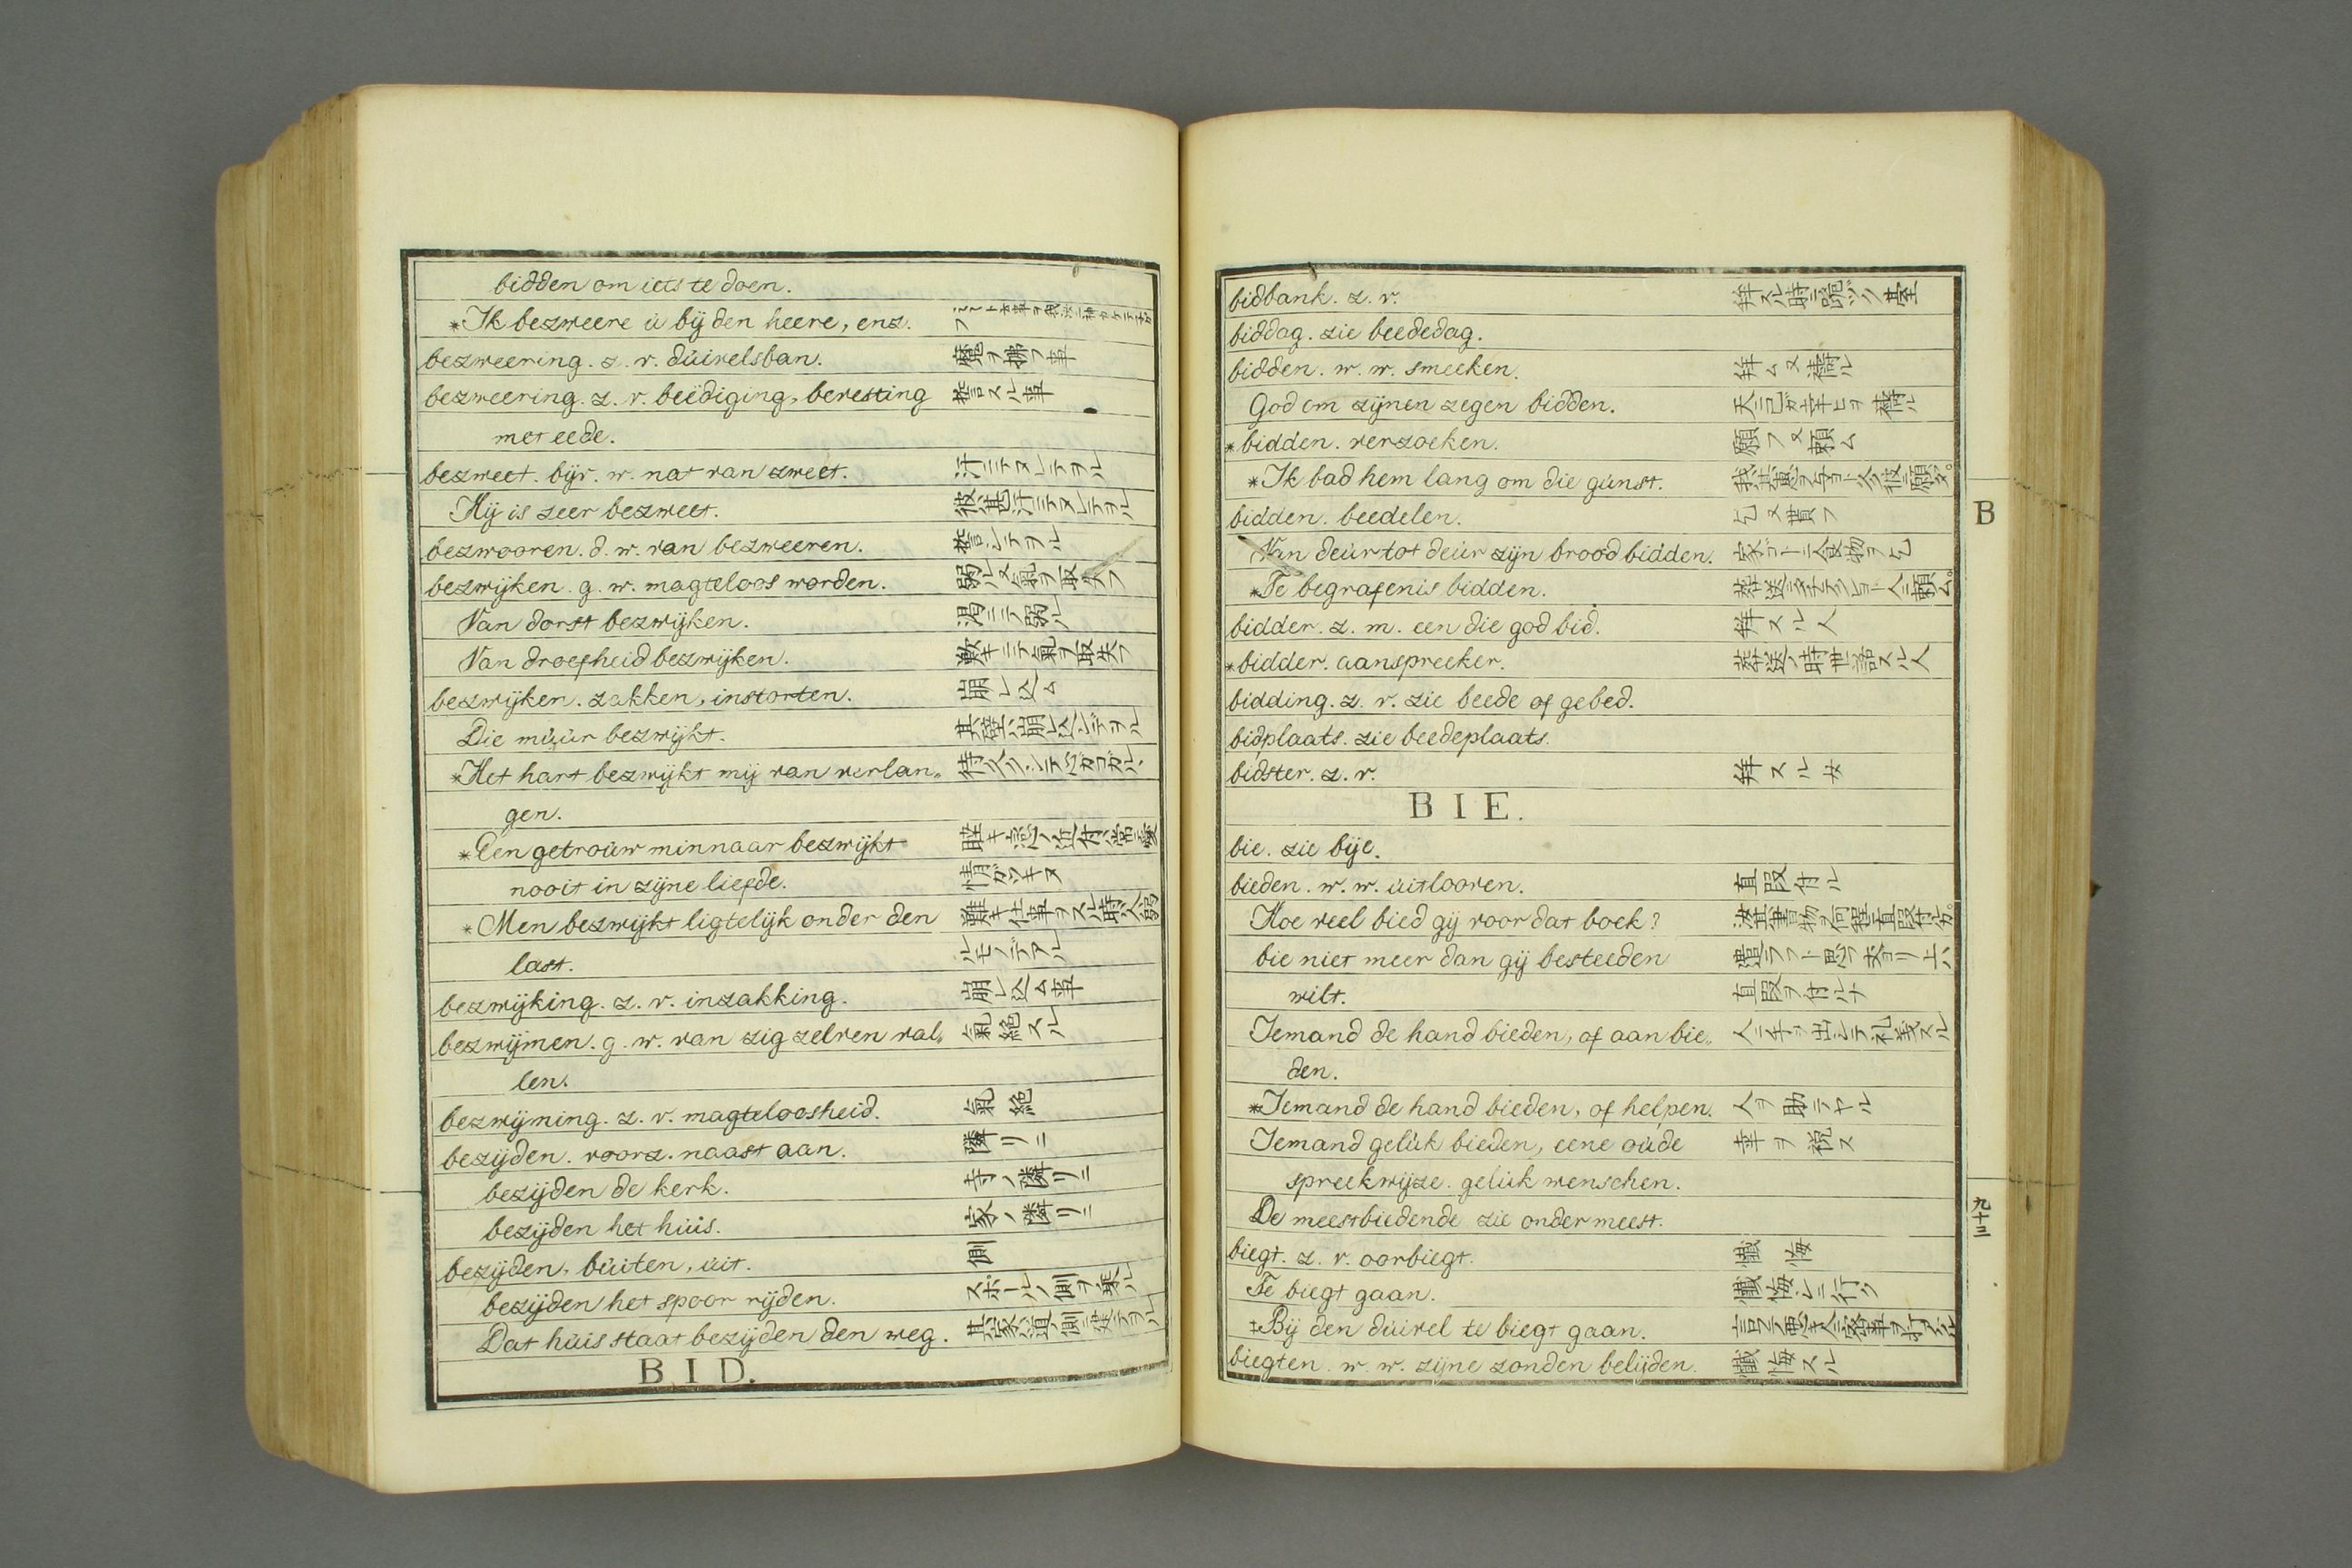 bidden om iets te doen.
*Ik bezweere ú bij den heere, enz.
bezweering. z. v. dúivelsban. 魔ヲ拂フ事
bezweering. z. v. beëdiging, bevesting 誓スル事
met eede.
bezweet. bijv. w. nat van zweet. 汗ニテヌレテヲル
Hij is zeer bezweet. 彼甚汗ニテヌレテヲル
bezwooren. d. w. van bezweeren. 誓シテヲル
bezwijken. g. w. magteloos worden. 弱ル又氣ヲ取失フ
Van dorst bezwijken. 渇ニテ弱ル
Van droefheid bezwijken. 歎キニテ氣ヲ取失フ
bezwijken. zakken, instorten. 崩レ込ム
Die múúr bezwijkt. 其壁ハ崩レ込ンデヲル
*Het hart bezwijkt mij van verlan„
gen.
*Een getroúw minnaar bezwijkt
nooit in zijne liefde. 情ガツキヌ
*Men bezwijkt ligtelijk onder den 難キ仕事ヲスル時ハ弱
last. ルモノデアル
bezwijking. z. v. inzakking. 崩レ込ム事
bezwijmen. g. w. van zig zelven val„ 氣絶スル
len.
bezwijming. z. v. magteloosheid. 氣絶
bezijden. voorz. naast aan. 隣リニ
bezijden de kerk. 寺ノ隣リニ
bezijden het húis. 家ノ隣リニ
bezijden, búiten, úit. 側
bezijden het spoor rijden. スポールノ側ヲ乘ル
Dat húis staat bezijden den weg. 其家ハ道ノ側ニ建テヲル
BID.
bidbank. z. v. 拜スル時ニ跪ヅク臺
biddag. zie beededag.
bidden. w. w. smeeken. 拜ム又禱ル
God om zijnen zegen bidden. 天ニ己ガ幸ヒヲ禱ル
*bidden. verzoeken. 願フ又頼ム
*Ik bad hem lang om die gúnst.
bidden. beedelen. 乞又貰フ
Van deúr tot deúr zijn brood bidden. 家ゴトニ食物ヲ乞
*Te begrafenis bidden.
bidder. z. m. een die god bid. 拜スル人
*bidder. aanspreeker. 葬送ノ時世話スル人
bidding. z. v. zie beede of gebed.
bidplaats. zie beedeplaats.
bidster. z. v. 拜スル女
BIE.
bie. zie bije.
bieden. w. w. úitlooven. 直段付ル
Hoe veel bied gij voor dat boek?
bie niet meer dan gij besteeden 遣ラフト思フ夲ヨリ上ハ
wilt. 直段ヲ付ルナ
Iemand de hand bieden, of aan bie„ 人ニ手ヲ出シテ礼義スル
den.
*Iemand de hand bieden, of helpen. 人ヲ助ニヤル
Iemand gelúk bieden, eene oúde 幸ヲ祝ス
spreekwijze. gelúk wenschen.
De meestbiedende zie onder meest.
biegt. z. v. oorbiegt. 懺悔
Te biegt gaan. 懺悔シニ行ク
‡Bij den dúivel te biegt gaan.
biegten. w. w. zijne zonden belijden. 懺悔スル
B
九十三